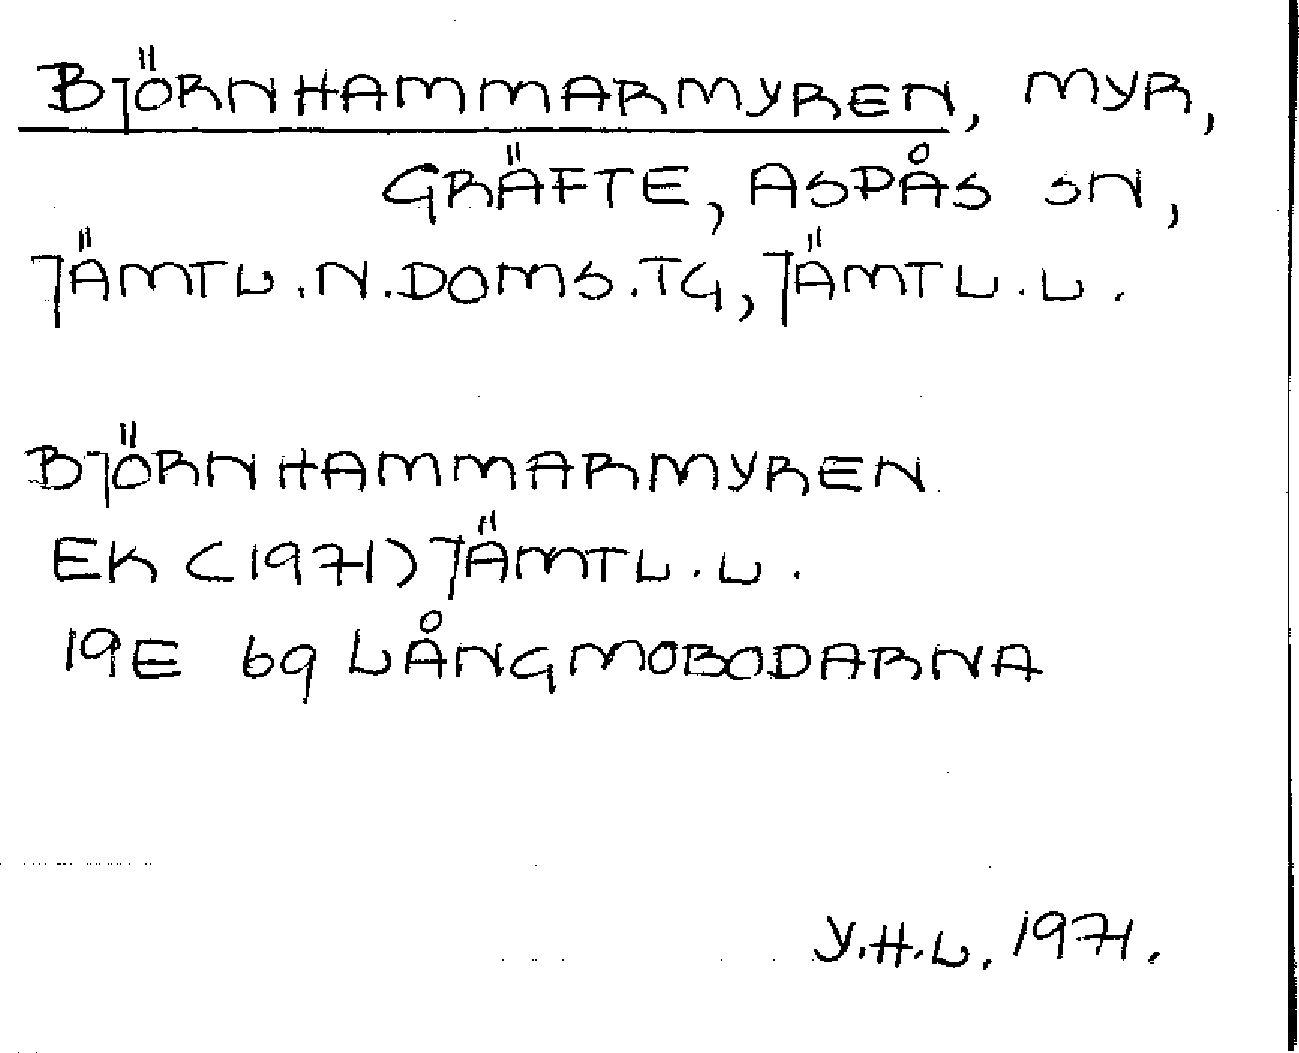 BJÖRNHAMMARMYREN, MYR,
GRÄFTE, ASPÅS SN,
JÄMTL.N.DOMS.TG, JÄMTL.L.
BJÖRNHAMMARMYREN
EK (1971) JÄMTL.L.
19E 6g LÅNGMOBODARNA
Y.H.L. 1971.